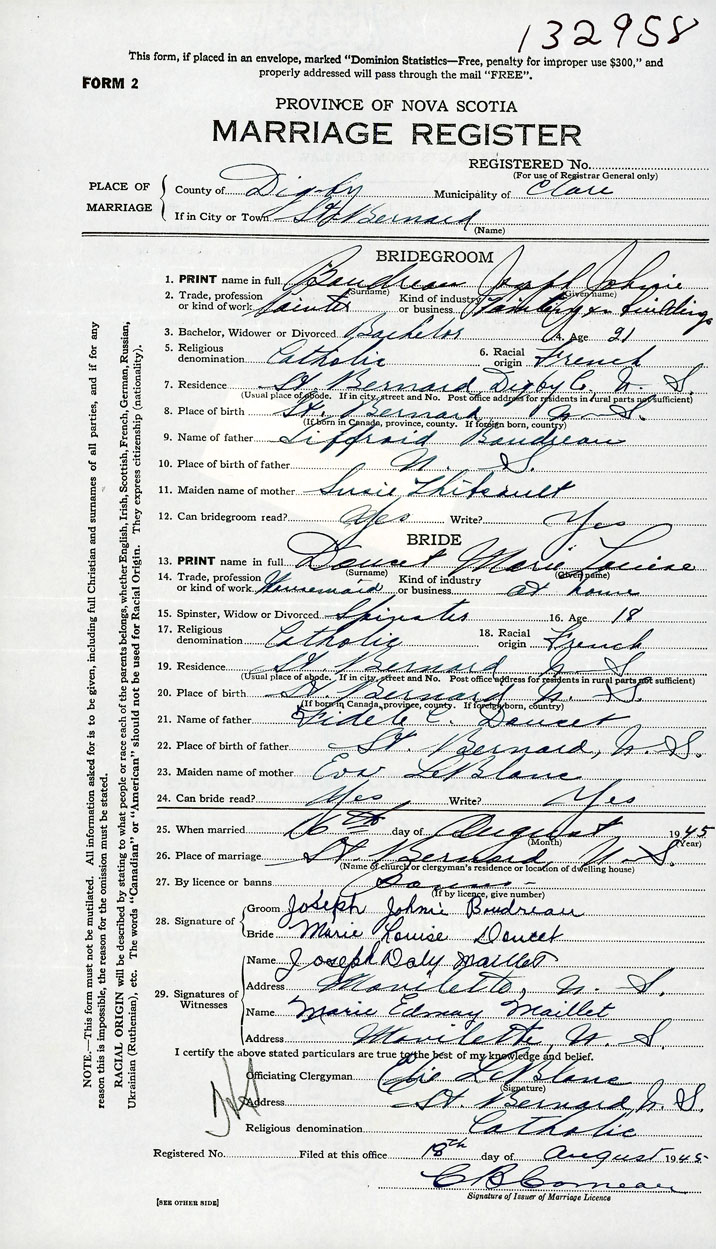 132958
This form, if placed in an envelope, marked "Dominion Statistics—Free, penalty for improper use $300," and
properly addressed will pass through the mail "FREE".
FORM 2
PROVINCE OF NOVA SCOTIA
MARRIAGE REGISTER
REGISTERED No.
(For use of Registrar General only)
PLACE OF MARRIAGE
County of Digby Municipality of Clare
If in City or Town St. Bernard
(Name)
BRIDEGROOM
1. PRINT name in full Boudreau Joseph Johnie
(Surname) (Given name)
2. Trade, profession or kind of work Painter Kind of industry or business Painting on buildings
3. Bachelor, Widower or Divorced Bachelor 4. Age 21
5. Religious denomination Catholic 6. Racial origin French
7. Residence St. Bernard Digby Co. N. S.
(Usual place of abode. If in city, street and No. Post office address for residents in rural parts not sufficient)
8. Place of birth St. Bernard N. S.
(If born in Canada, province, county. If foreign born, country)
9. Name of father Siffroid Boudreau
10. Place of birth of father N. S.
11. Maiden name of mother Susie Thibault
12. Can bridegroom read? Yes Write? Yes
BRIDE
13. PRINT name in full Doucet Marie Louise
(Surname) (Given name)
14. Trade, profession or kind of work Housemaid Kind of industry or business at home
15. Spinster, Widow or Divorced Spinster 16. Age 18
17. Religious denomination Catholic 18. Racial origin French
19. Residence St. Bernard N. S.
(Usual place of abode. If in city, street and No. Post office address for residents in rural parts not sufficient)
20. Place of birth St. Bernard N. S.
(If born in Canada, province, county. If foreign born, country)
21. Name of father Fidele C. Doucet
22. Place of birth of father St. Bernard, N. S.
23. Maiden name of mother Eva LeBlanc
24. Can bride read? Yes Write? Yes
25. When married 16th day of August 1945
(Month) (Year)
26. Place of marriage St. Bernard, N. S.
(Name of church or clergyman's residence or location of dwelling house)
27. By licence or banns Banns
(If by licence, give number)
28. Signature of
Groom Joseph Johnie Boudreau
Bride Marie Louise Doucet
29. Signatures of Witnesses
Name Joseph Daly Maillet
Address Mavilette, N. S.
Name Marie Edmay Maillet
Address Mavilette, N. S.
I certify the above stated particulars are true to the best of my knowledge and belief.
Officiating Clergyman Elie LeBlanc
(Signature)
Address St. Bernard N. S.
Religious denomination Catholic
Registered No. Filed at this office 18th day of August 1945
C B Comeau
Signature of Issuer of Marriage Licence
[SEE OTHER SIDE]
NOTE.—This form must not be mutilated. All information asked for is to be given, including full Christian and surnames of all parties, and if for any
reason this is impossible, the reason for the omission must be stated.
RACIAL ORIGIN will be described by stating to what people or race each of the parents belongs, whether English, Irish, Scottish, French, German, Russian,
Ukrainian (Ruthenian), etc. The words "Canadian" or "American" should not be used for Racial Origin. They express citizenship (nationality).